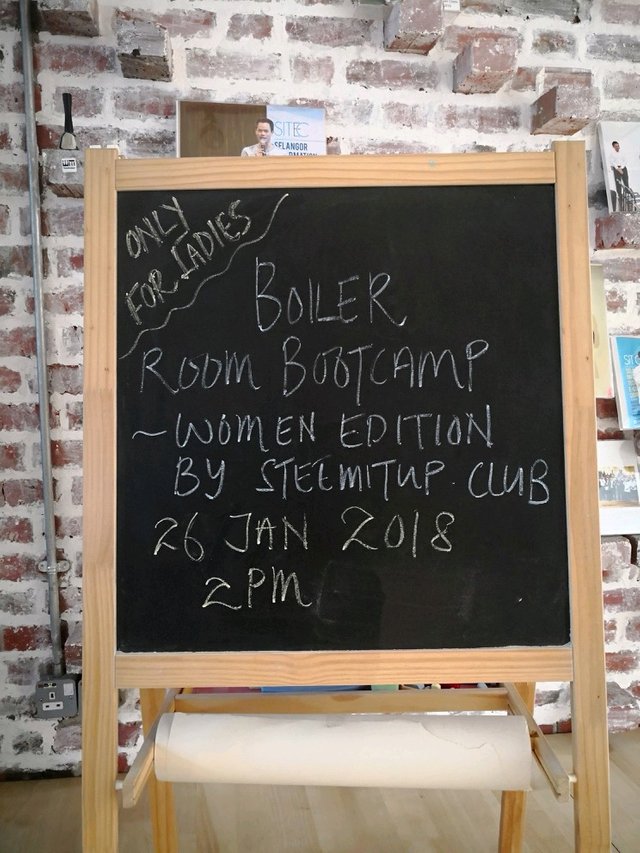 SITEC
SELANGOR
ONLY
FOR LADIES
BOILER
ROOM BOOTCAMP
~ WOMEN EDITION
BY STEEMITUP CLUB
26 JAN 2018
2PM